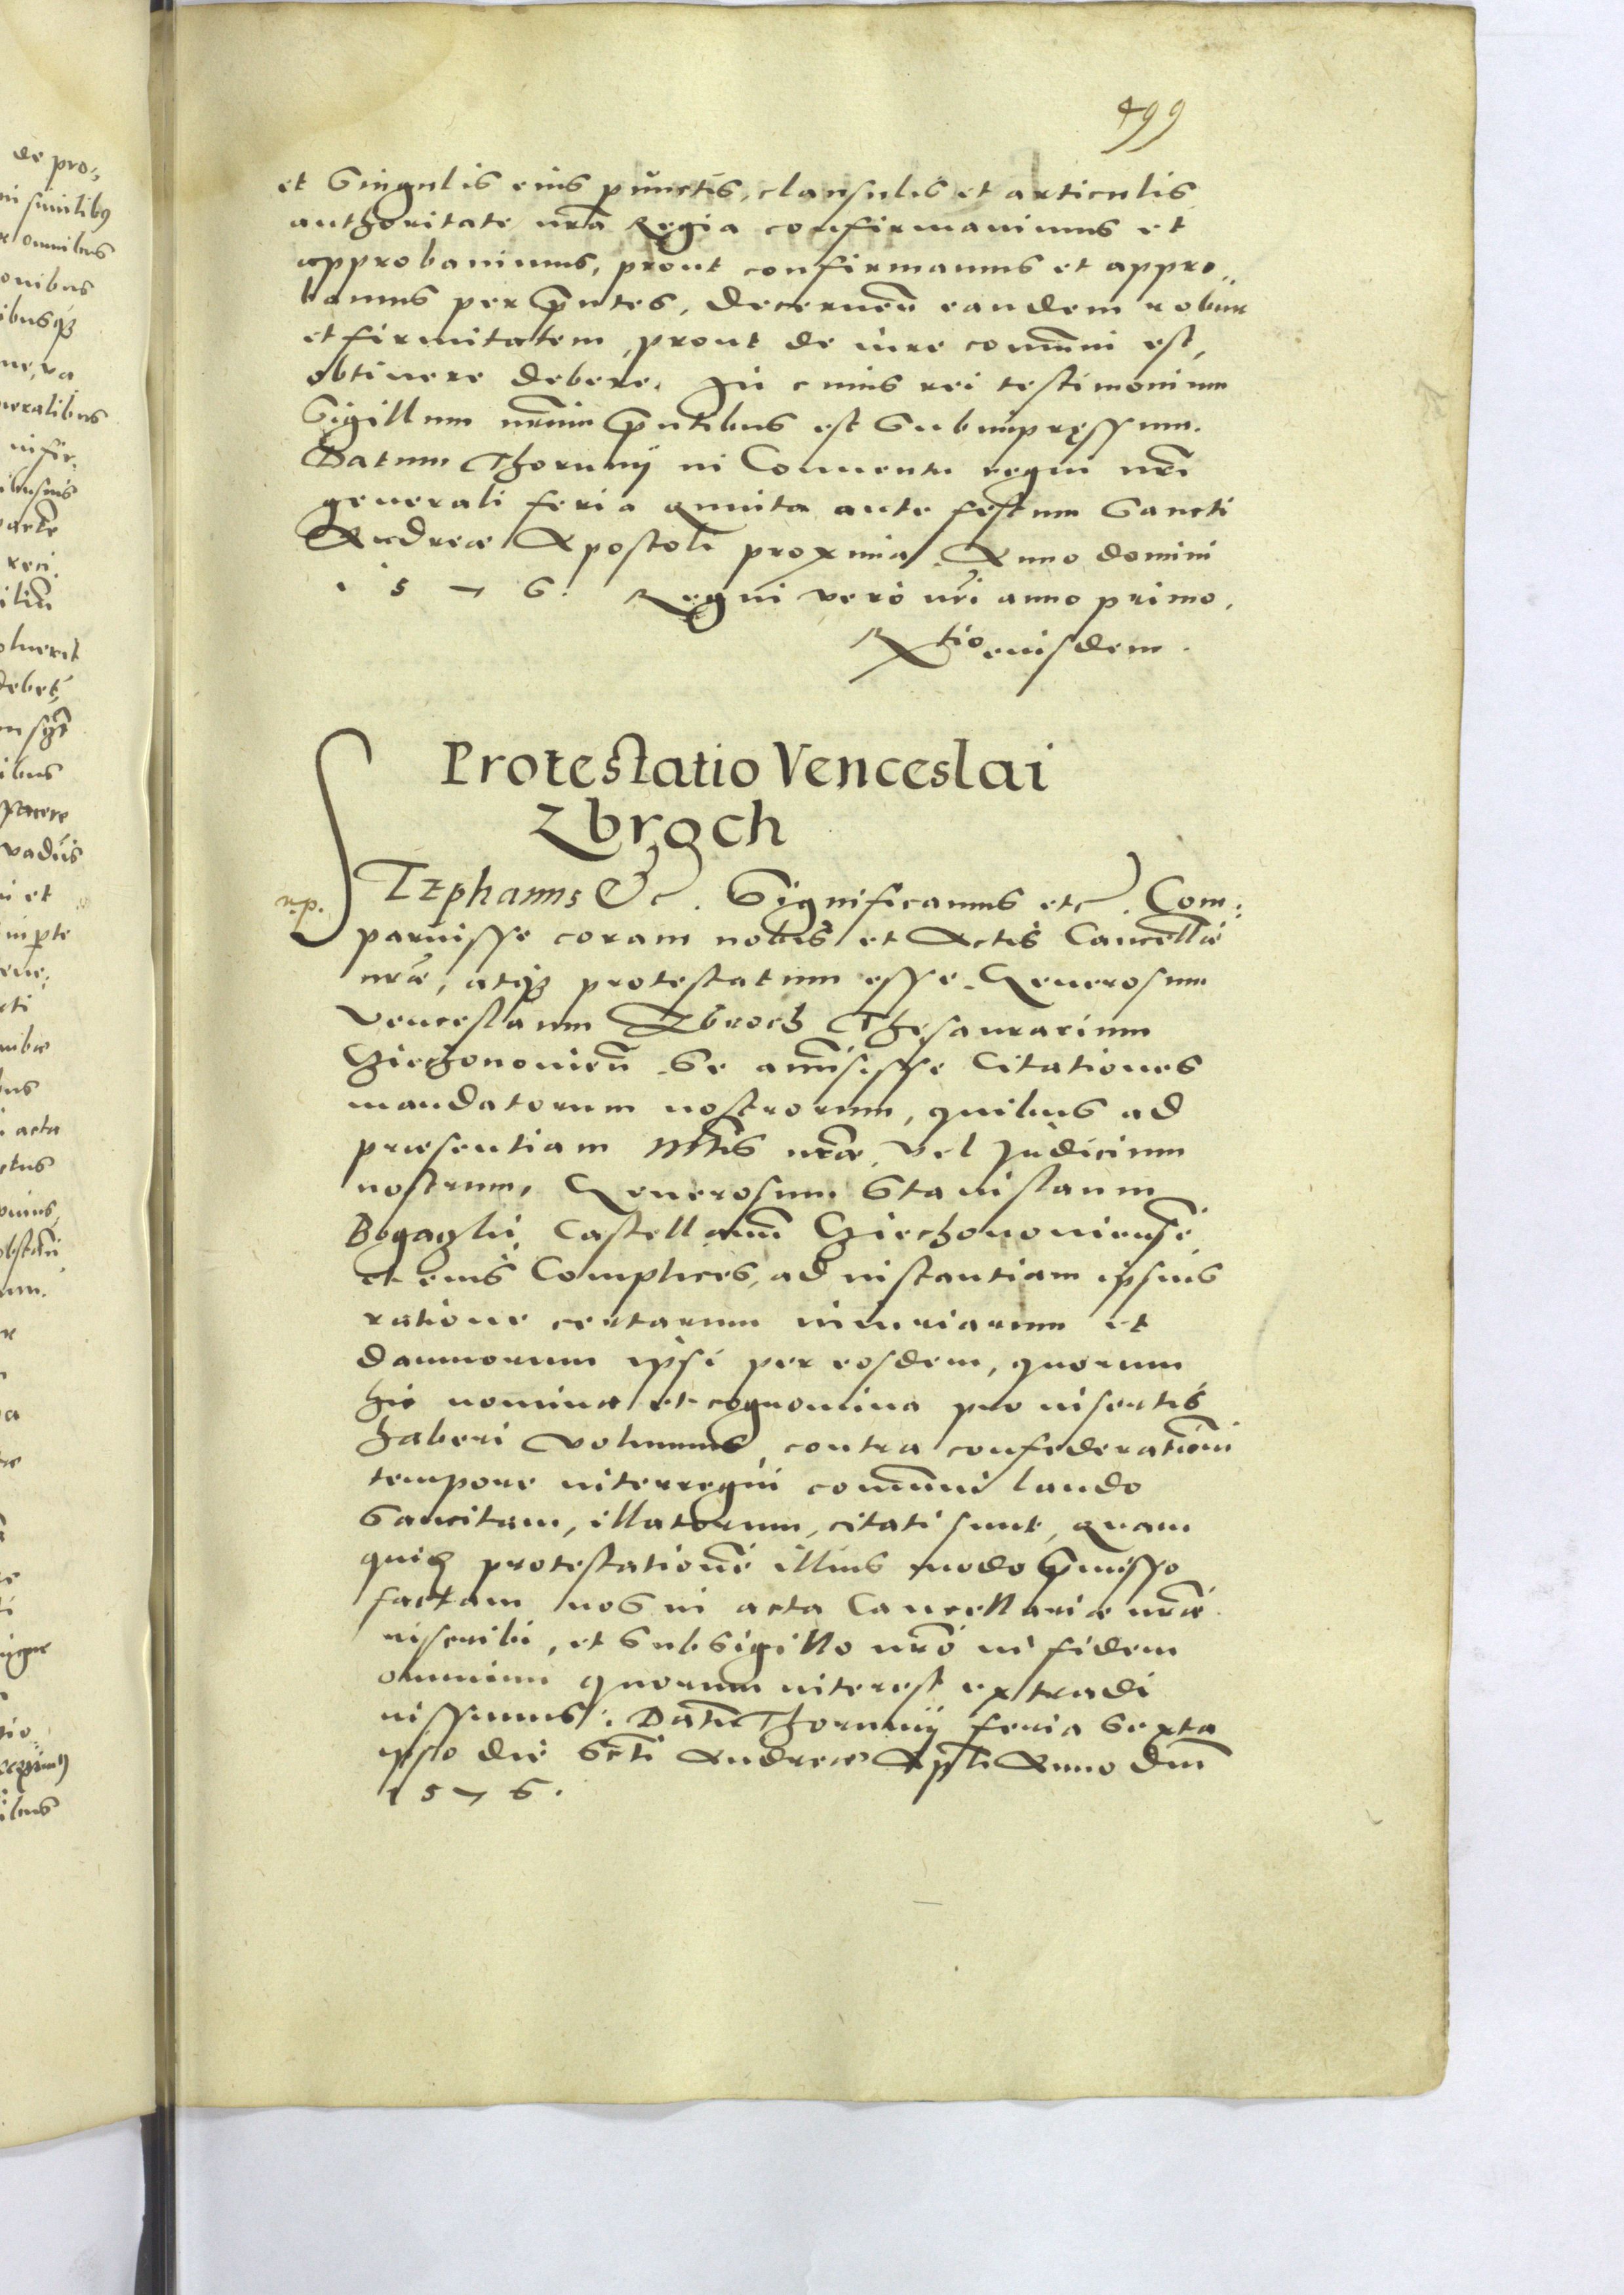 499
et singulis eius punctis, clausulis et articulis
authoritate nr̃a Regia confirmauimus et
approbauimus, prout confirmamus et appro-
bamus per pñtes, decernen̄ eandem robur
et firmitatem, prout de iure comuni est,
obtinere debere. In cuius rei testimonium
Sigillum nr̃um pñtibus est subimpressum.
Datum Thorunij in Conuentu regni nr̃i
generali feria quinta ante festum Sancti
Andreæ Apostoli proxima. Anno domini
1576. Regni vero nr̃i anno primo.
Rtio eiusdem.
Protestatio Venceslai
Zbroch
STEphanus &c. Significamus etc. Com-
paruisse coram nobis et Actis Cancellariæ
nr̃æ, atq3 protestatum esse Generosum
Venceslaum Zbroch Thesaurarium
Ziechonouien̄ se amisisse Citationes
mandatorum nostrorum, quibus ad
præsentiam Mtis nr̃æ, vel Judicium
nostrum, Generosum Stanislaum
Castellanum Ziechonouiensē
et eius Complices, ad instantiam ipsius
ratione certarum iniuriarum et
damnorum ipsi per eosdem, quorum
hic nomina et cognomina pro insertis
haberi volumus, contra confederationem
tempore interregni comuni laudo
sancitam, illatorum, citati sunt, quam
quid protestationē illius modo pmisso
factam nos in acta Cancellariæ nr̃æ
inscribi, et sub sigillo nr̃o in fidem
omnium quorum interest extradi
iussimus. Datum Thorunij feria sexta
ipso die Scti Andreæ Apli Anno Dni
1576.